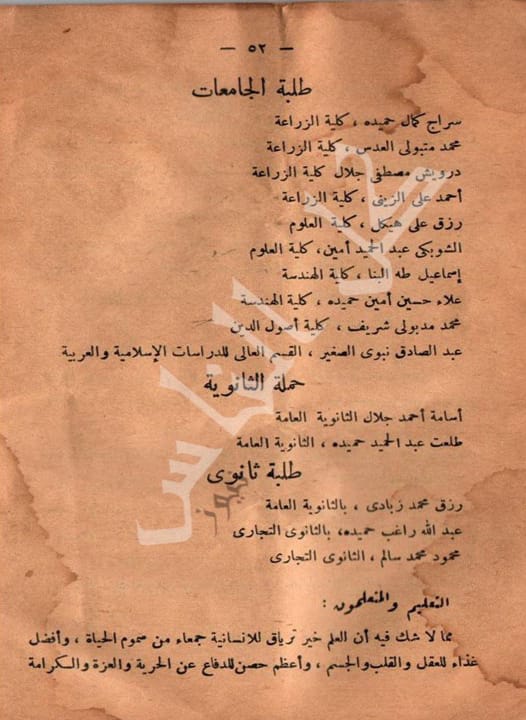 — ٥٢ —
طلبة الجامعات
سراج كمال حميده ، كلية الزراعة
محمد متبولى العدس ، كلية الزراعة
درويش مصطفى جلال كلية الزراعة
أحمد على الزينى ، كلية الزراعة
رزق على هيكل ، كلية العلوم
الشوبكى عبد الحميد أمين، كلية العلوم
إسماعيل طه البنا ، كلية الهندسة
علاء حسين أمين حميده ، كلية الهندسة
محمد مدبولى شريف ، كلية أصول الدين
عبد الصادق نبوى الصغير ، القسم العالى للدراسات الإسلامية والعربية
حملة الثانوية
أسامة أحمد جلال الثانوية العامة
طلعت عبد الحميد حميده ، الثانوية العامة
طلبة ثانوى
رزق محمد زيادى ، بالثانوية العامة
عبد الله راغب حميده، بالثانوى التجارى
محمود محمد سالم ، الثانوى التجارى
التعليم والمتعلمون :
مما لا شك فيه أن العلم خير ترياق للانسانية جمعاء من سموم الحياة ، وأفضل
غذاء للعقل والقلب والجسم ، وأعظم حصن للدفاع عن الحرية والعزة والكرامة
كل الناس
نيوز